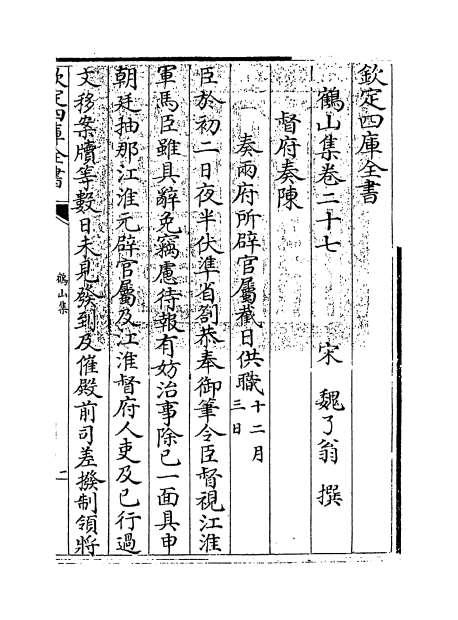 欽定四庫全書
鶴山集卷二十七
宋 魏了翁 撰
督府奏陳
奏兩府所辟官屬截日供職十二月三日
臣於初二日夜半伏準省劄恭奉御筆令臣督視江淮
軍馬臣雖具辭免竊慮待報有妨治事除已一面具申
朝廷抽那江淮元辟官屬及江淮督府人吏及已行過
文移案牘等數日未見發到及催殿前司差撥制領將
欽定四庫全書
鶴山集